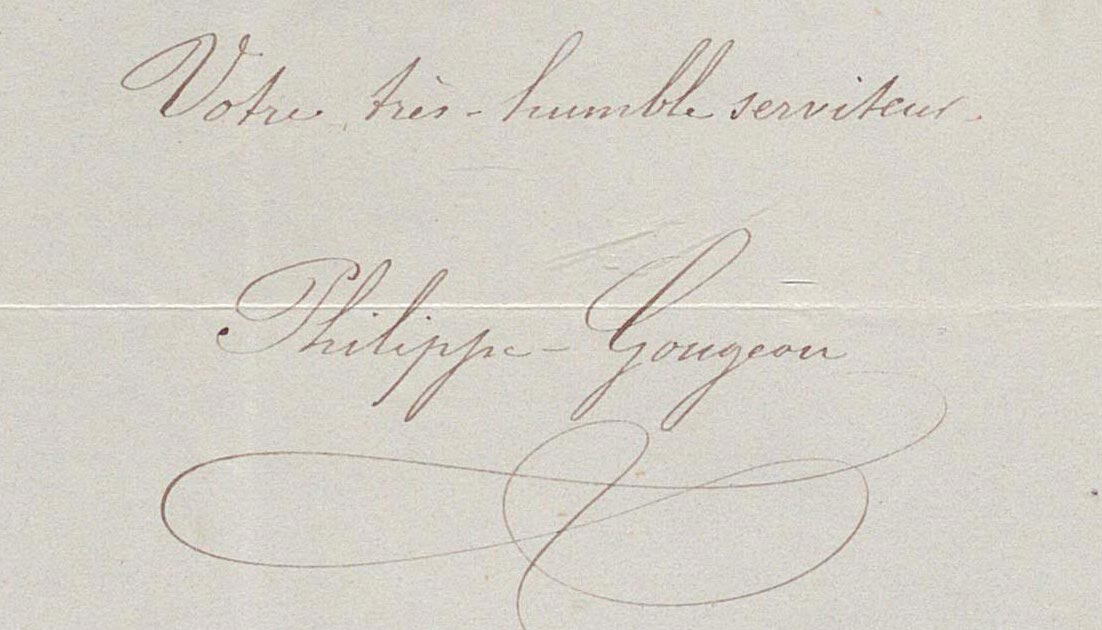 Votre très-humble serviteur.
Philippe-Gougeon